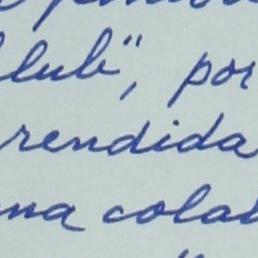 lub", por
rendida
na cola